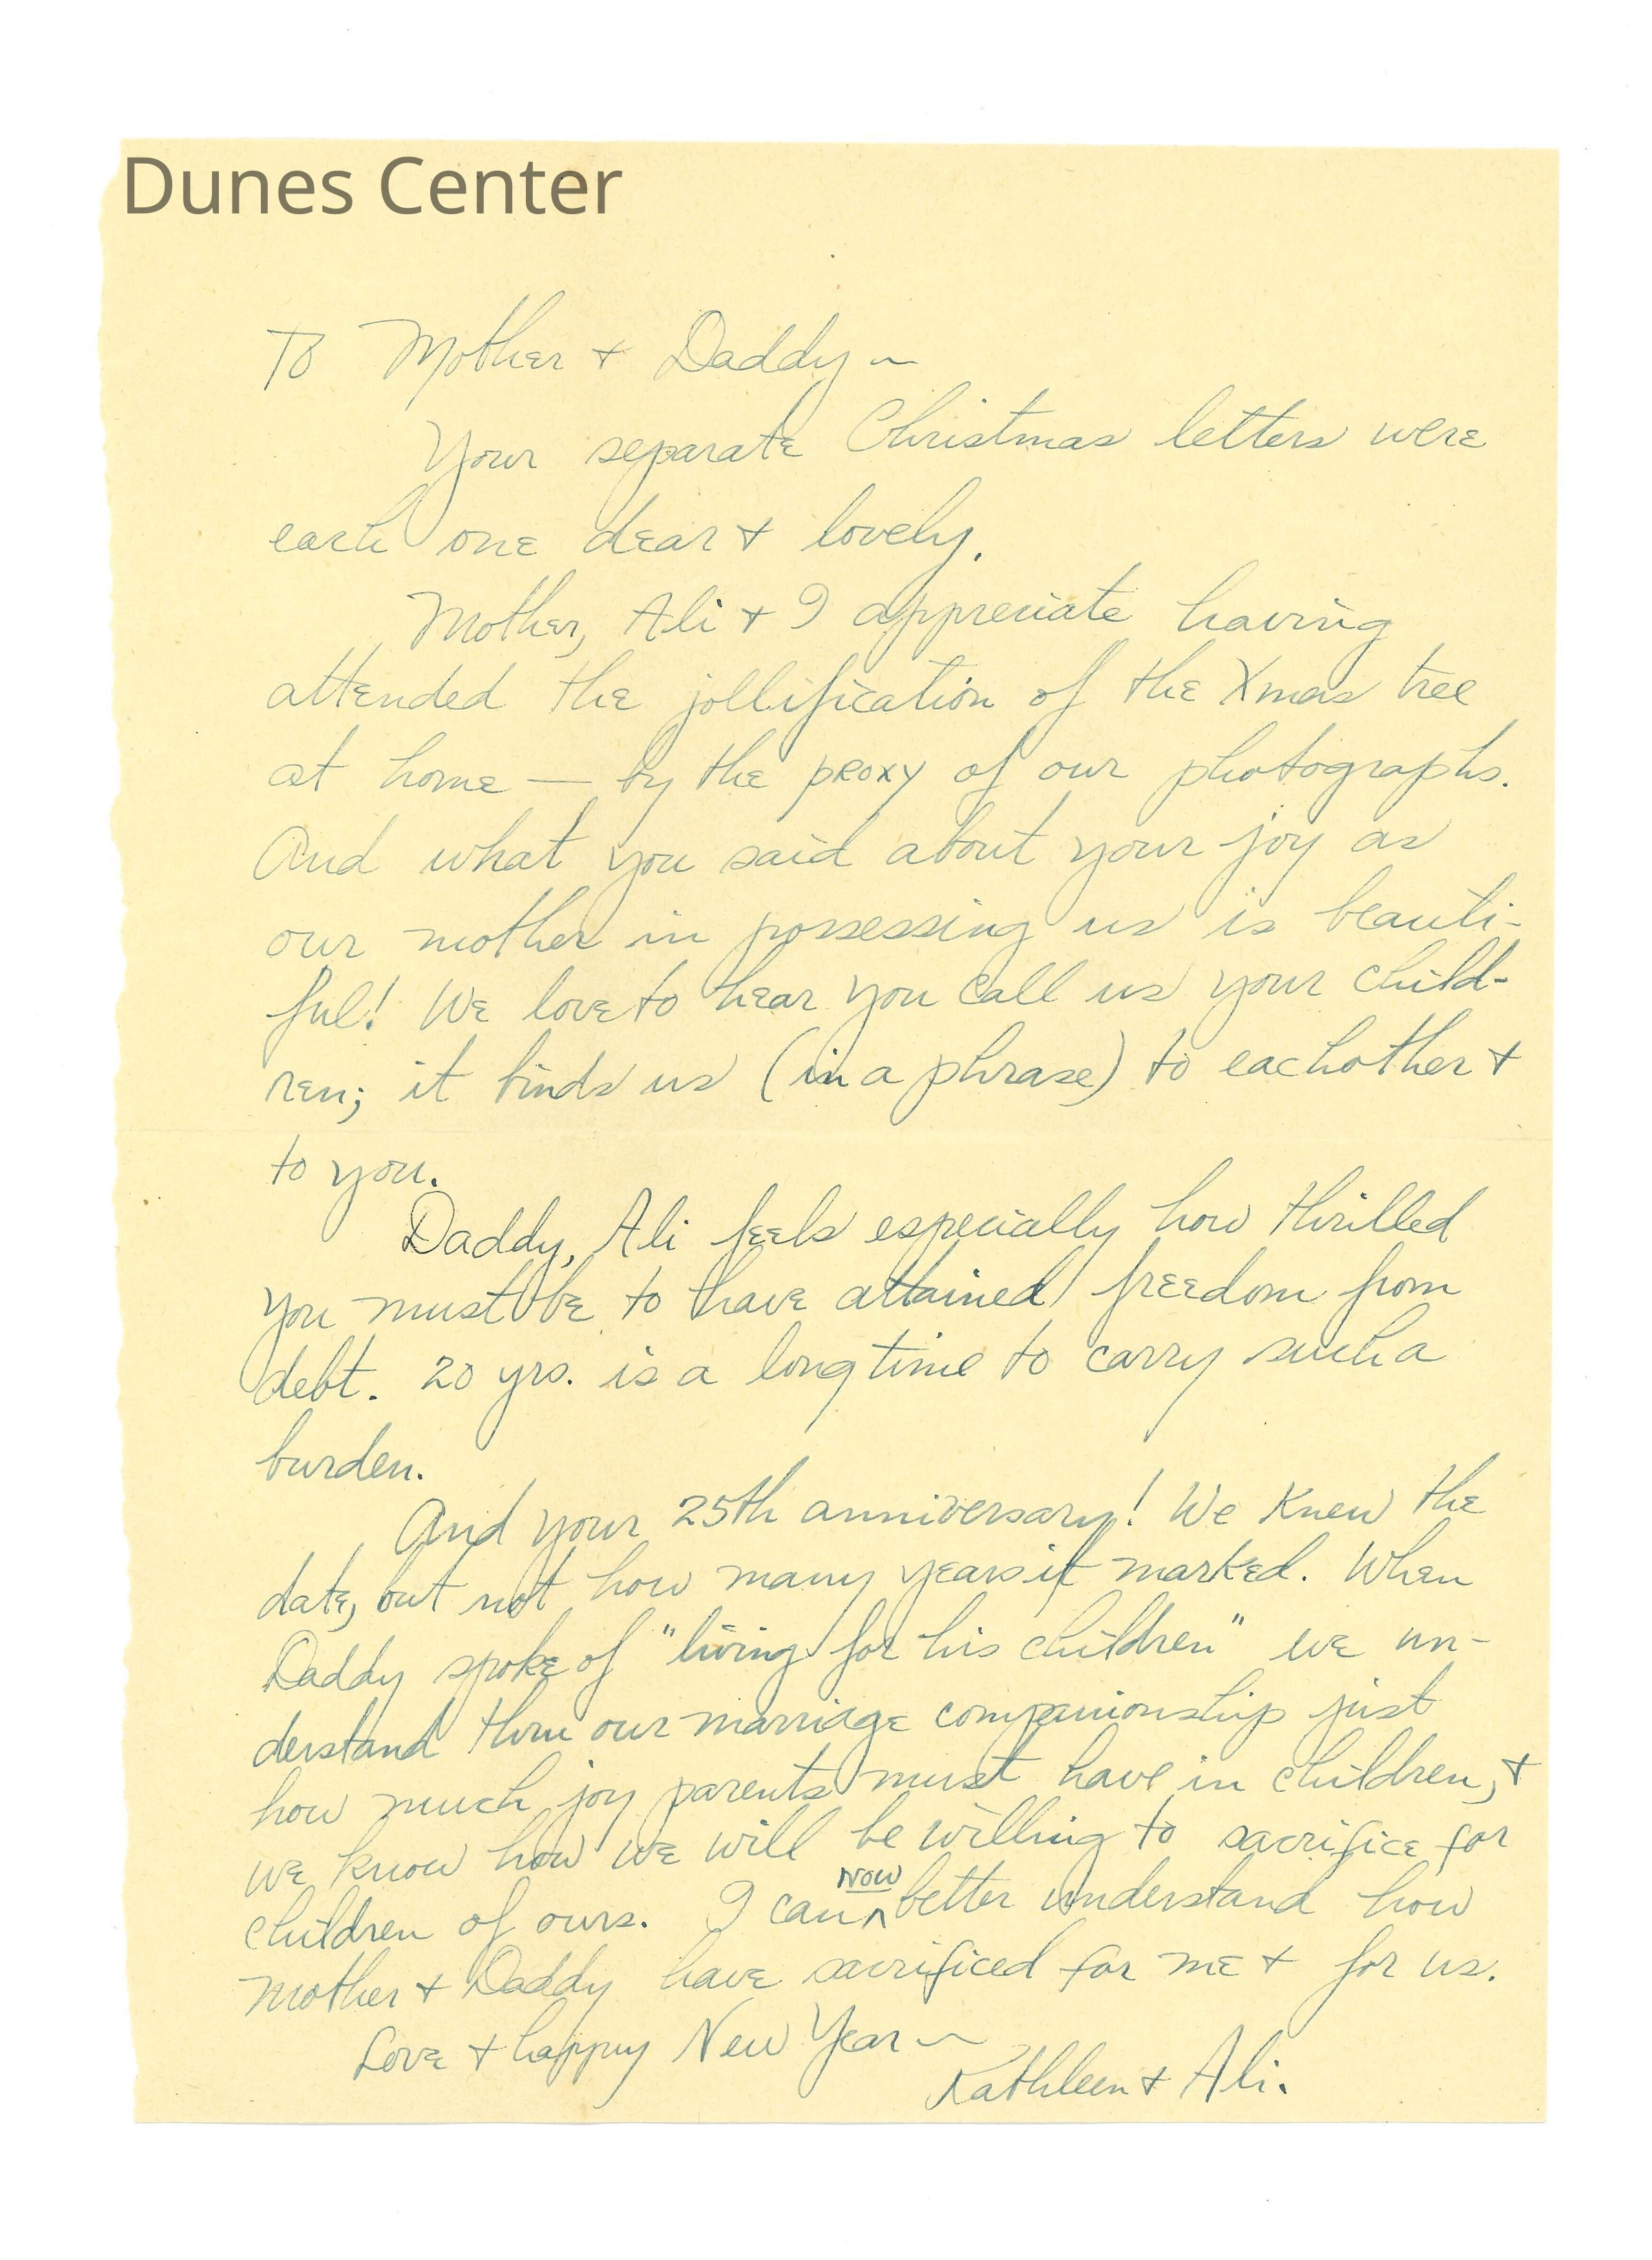 Dunes Center
To Mother + Daddy ~
Your separate Christmas letters were
each one dear + lovely.
Mother, Ali + I appreciate having
attended the jollification of the Xmas tree
at home — by the proxy of our photographs.
And what you said about your joy as
our mother in possessing us is beauti-
ful! We love to hear you call us your child-
ren; it binds us (in a phrase) to eachother +
to you.
Daddy, Ali feels especially how thrilled
you must be to have attained freedom from
debt. 20 yrs. is a long time to carry such a
burden.
And your 25th anniversary! We knew the
date, but not how many years it marked. When
Daddy spoke of "living for his children" we un-
derstand thru our marriage companionship just
how much joy parents must have in children, +
we know how we will be willing to sacrifice for
children of ours. I can now better understand how
Mother + Daddy have sacrificed for me + for us.
Love + happy New Year ~
Kathleen + Ali.